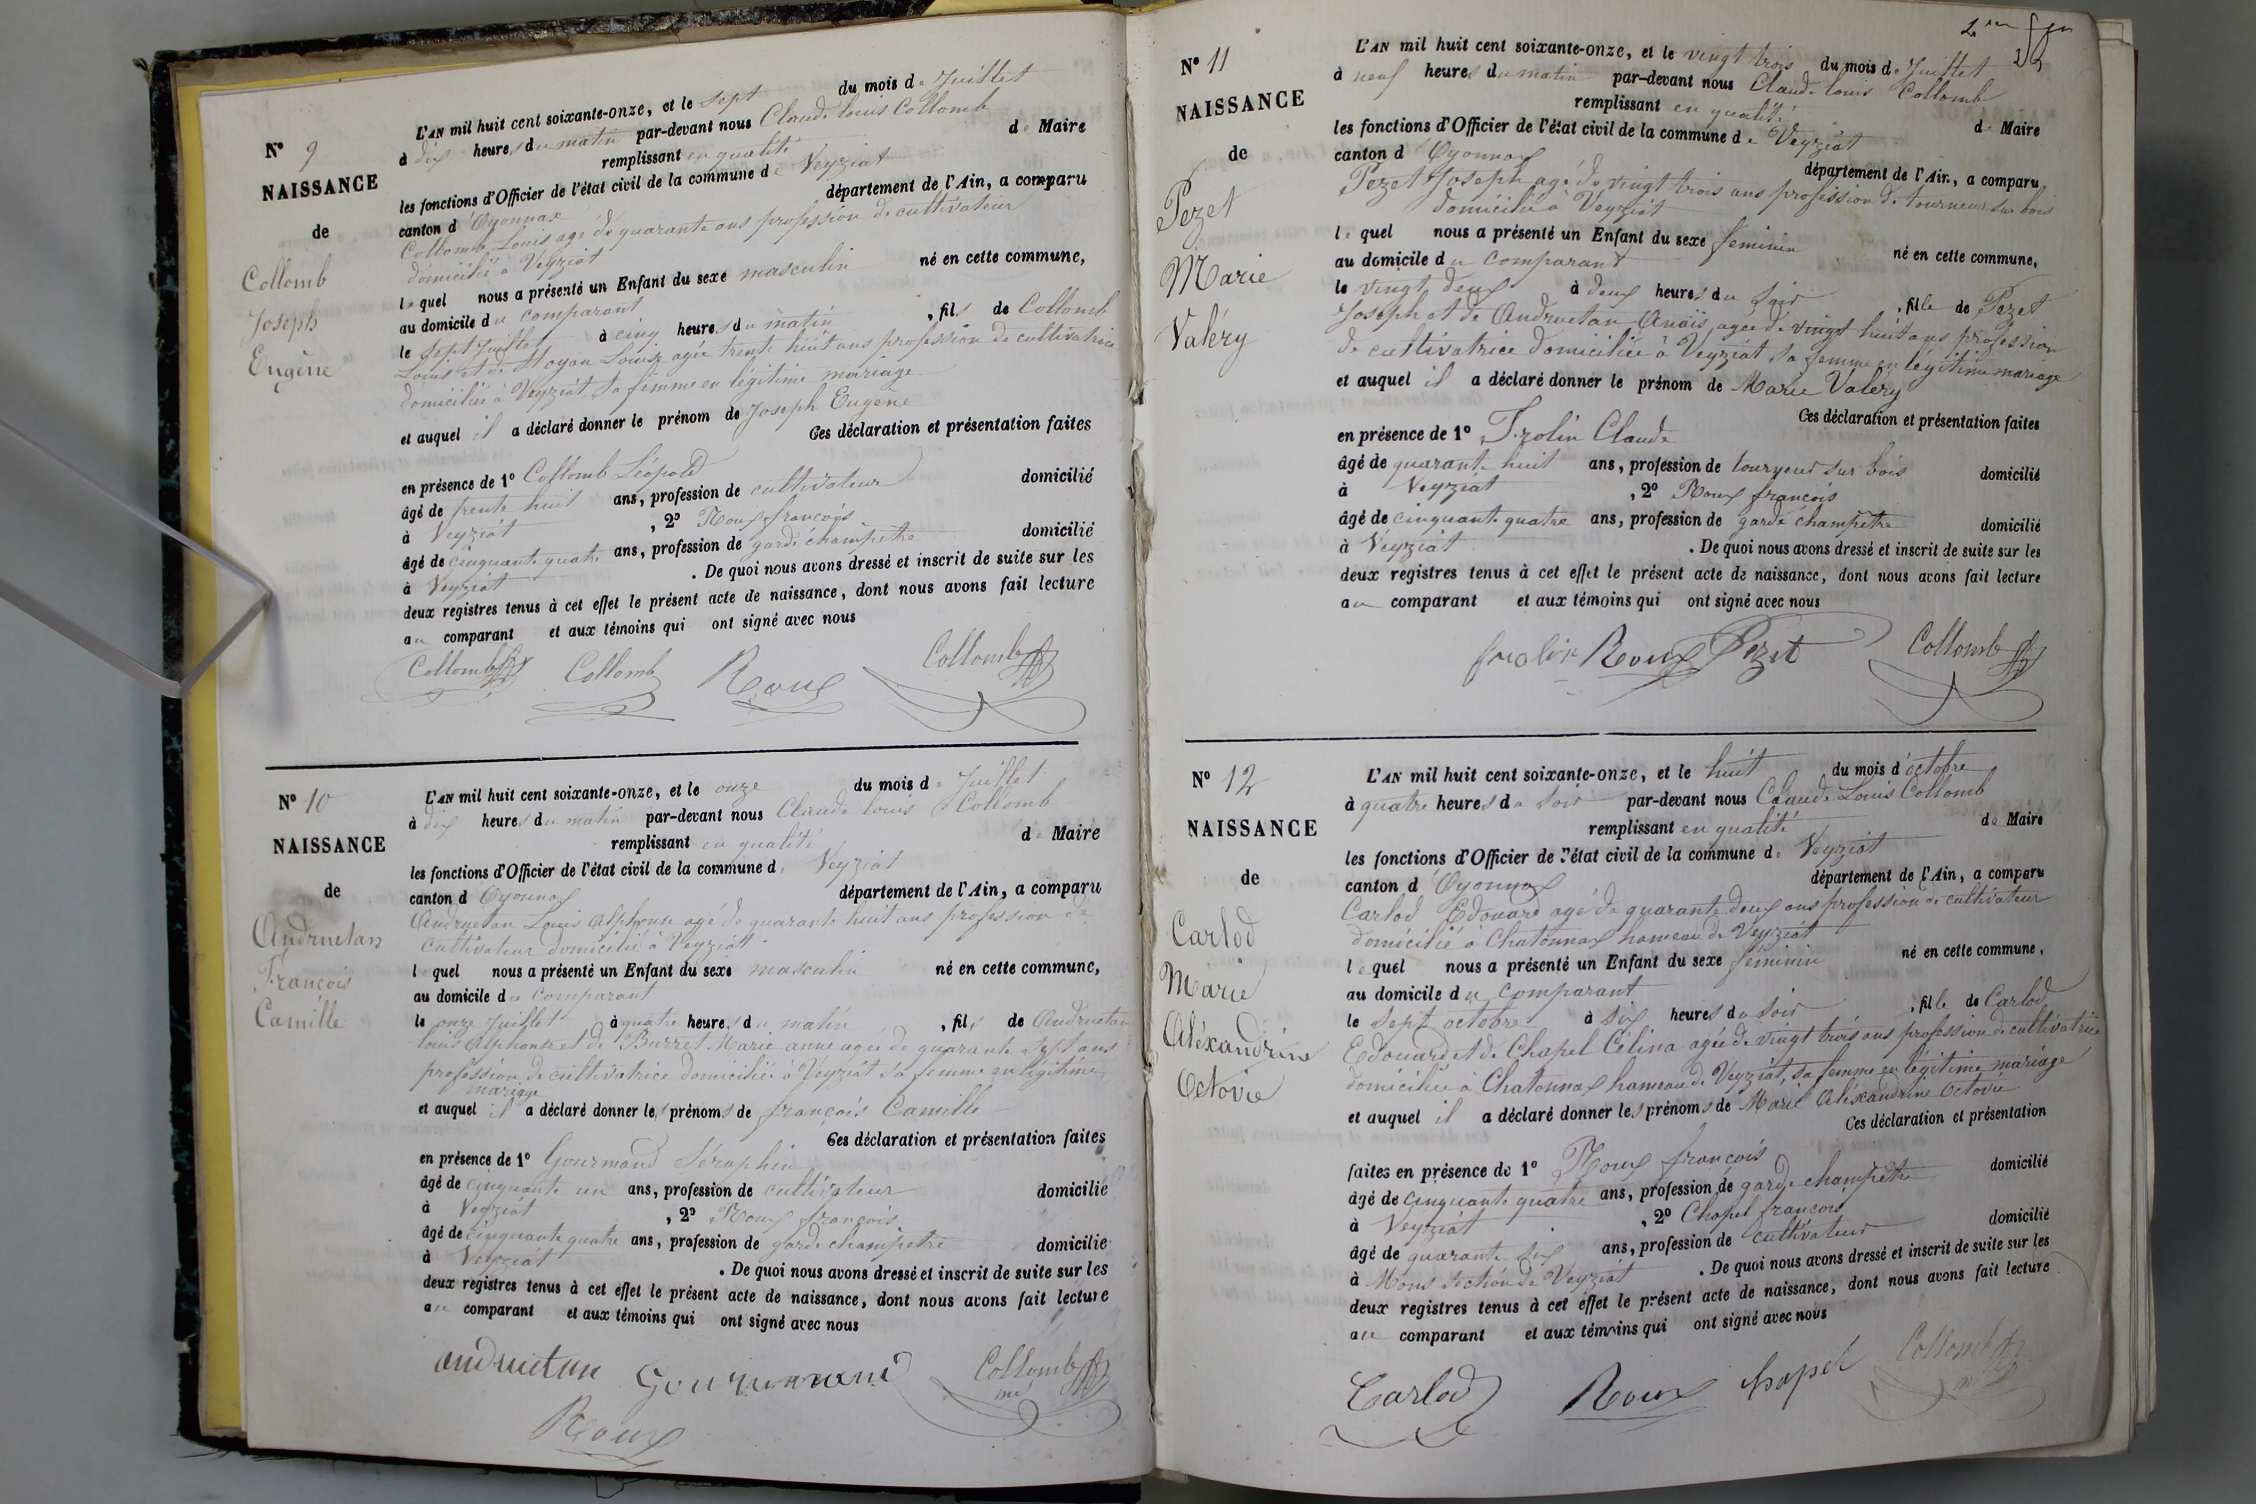 N° 9
NAISSANCE
de
Collomb
Joseph
Eugène
L'AN mil huit cent soixante-onze, et le sept du mois de Juillet
à dix heures du matin par-devant nous Claude Louis Collomb
remplissant en qualité de Maire
les fonctions d'Officier de l'état civil de la commune de Veyziat
canton d'Oyonnax département de l'Ain, a comparu
Collomb Louis agé de quarante ans profession de cultivateur
domicilié à Veyziat
lequel nous a présenté un Enfant du sexe masculin né en cette commune,
au domicile du comparant
le sept Juillet à cinq heures du matin, fils de Collomb
Louis et de Moyan Louise agée trente huit ans profession de cultivatrice
domiciliée à Veyziat, sa femme en légitime mariage
et auquel il a déclaré donner le prénom de Joseph Eugène
Ces déclaration et présentation faites
en présence de 1° Collomb Léopold
âgé de trente huit ans, profession de cultivateur domicilié
à Veyziat, 2° Roux françois
âgé de cinquante quatre ans, profession de garde champêtre domicilié
à Veyziat. De quoi nous avons dressé et inscrit de suite sur les
deux registres tenus à cet effet le présent acte de naissance, dont nous avons fait lecture
au comparant et aux témoins qui ont signé avec nous
Collomb Collomb Roux Collomb
N° 10
NAISSANCE
de
Andruetan
François
Camille
L'AN mil huit cent soixante-onze, et le onze du mois de Juillet
à dix heures du matin par-devant nous Claude Louis Collomb
remplissant en qualité de Maire
les fonctions d'Officier de l'état civil de la commune de Veyziat
canton d'Oyonnax département de l'Ain, a comparu
Andruetan Louis Alphonse agé de quarante huit ans profession de
cultivateur domicilié à Veyziat
lequel nous a présenté un Enfant du sexe masculin né en cette commune,
au domicile du comparant
le onze Juillet à quatre heures du matin, fils de Andruetan
Louis Alphonse et de Burret Marie anne agée de quarante sept ans
profession de cultivatrice domiciliée à Veyziat sa femme en légitime
mariage
et auquel il a déclaré donner les prénoms de françois Camille
Ces déclaration et présentation faites
en présence de 1° Gourmand Séraphin
âgé de cinquante un ans, profession de cultivateur domicilié
à Veyziat, 2° Roux françois
âgé de cinquante quatre ans, profession de garde champêtre domicilié
à Veyziat. De quoi nous avons dressé et inscrit de suite sur les
deux registres tenus à cet effet le présent acte de naissance, dont nous avons fait lecture
au comparant et aux témoins qui ont signé avec nous
andruetan Gourmand Collomb
Roux
N° 11
NAISSANCE
de
Pezet
Marie
Valéry
L'AN mil huit cent soixante-onze, et le vingt trois du mois de Juillet
à neuf heures du matin par-devant nous Claude Louis Collomb
remplissant en qualité de Maire
les fonctions d'Officier de l'état civil de la commune de Veyziat
canton d'Oyonnax département de l'Ain, a comparu
Pezet Joseph agé de vingt trois ans profession de tourneur sur bois
domicilié à Veyziat
lequel nous a présenté un Enfant du sexe feminin né en cette commune,
au domicile du comparant
le vingt deux à deux heures du soir, fille de Pezet
Joseph et de Andruetan Anaïs, agée de vingt huit ans profession
de cultivatrice domiciliée à Veyziat sa femme en légitime mariage
et auquel il a déclaré donner le prénom de Marie Valéry
Ces déclaration et présentation faites
en présence de 1° Frolin Claude
âgé de quarante huit ans, profession de tourneur sur bois domicilié
à Veyziat, 2° Roux françois
âgé de cinquante quatre ans, profession de garde champêtre domicilié
à Veyziat. De quoi nous avons dressé et inscrit de suite sur les
deux registres tenus à cet effet le présent acte de naissance, dont nous avons fait lecture
au comparant et aux témoins qui ont signé avec nous
frolin Roux Pezet Collomb
N° 12
NAISSANCE
de
Carlod
Marie
Aléxandrine
Octovie
L'AN mil huit cent soixante-onze, et le huit du mois d'octobre
à quatre heures du soir par-devant nous Claude Louis Collomb
remplissant en qualité de Maire
les fonctions d'Officier de l'état civil de la commune de Veyziat
canton d'Oyonnax département de l'Ain, a comparu
Carlod Edouard agé de quarante deux ans profession de cultivateur
domicilié à Chatonnax hameau de Veyziat
lequel nous a présenté un Enfant du sexe feminin né en cette commune,
au domicile du comparant
le sept octobre à six heures du soir, fille de Carlod
Edouard et de Chapel Célina agée de vingt trois ans profession de cultivatrice
domiciliée à Chatonnax hameau de Veyziat, sa femme en légitime mariage
et auquel il a déclaré donner les prénoms de Marie Aléxandrine Octovie
Ces déclaration et présentation
faites en présence de 1° Roux françois
âgé de cinquante quatre ans, profession de garde champêtre domicilié
à Veyziat, 2° Chapel françois
âgé de quarante six ans, profession de cultivateur domicilié
à Mons section de Veyziat. De quoi nous avons dressé et inscrit de suite sur les
deux registres tenus à cet effet le présent acte de naissance, dont nous avons fait lecture
au comparant et aux témoins qui ont signé avec nous
Carlod Roux chapel Collomb